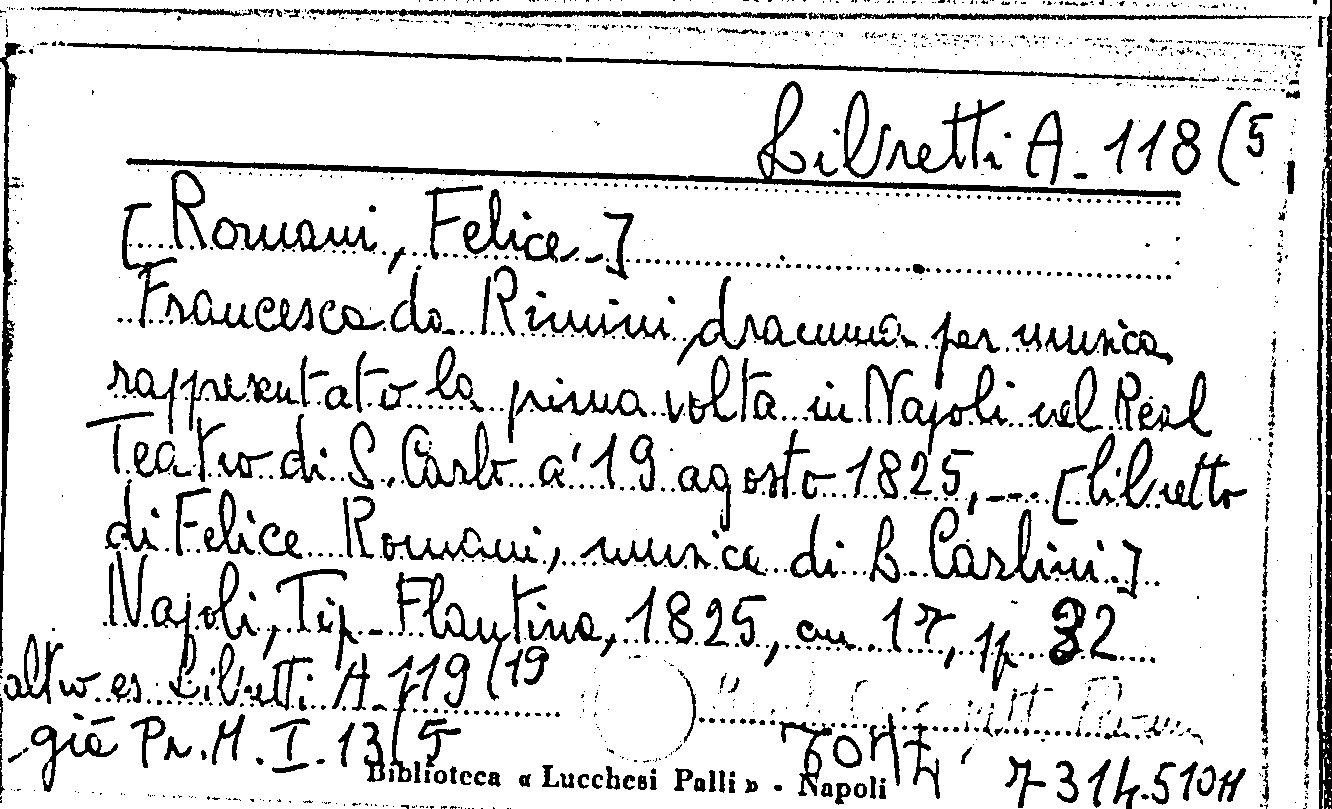 Libretti A. 118 (5
[Romani, Felice.]
Francesca da Rimini, dramma per musica
rappresentato la prima volta in Napoli nel Real
Teatro di S. Carlo a' 19 agosto 1825, ... [libretto
di Felice Romani, musica di L. Carlini.]
Napoli, Tip. Flautina, 1825, cm. 17, pp 32
altro es. Libretti A. 119 (19
già Pr. M. I. 13(5
Biblioteca « Lucchesi Palli » - Napoli
7314.510H